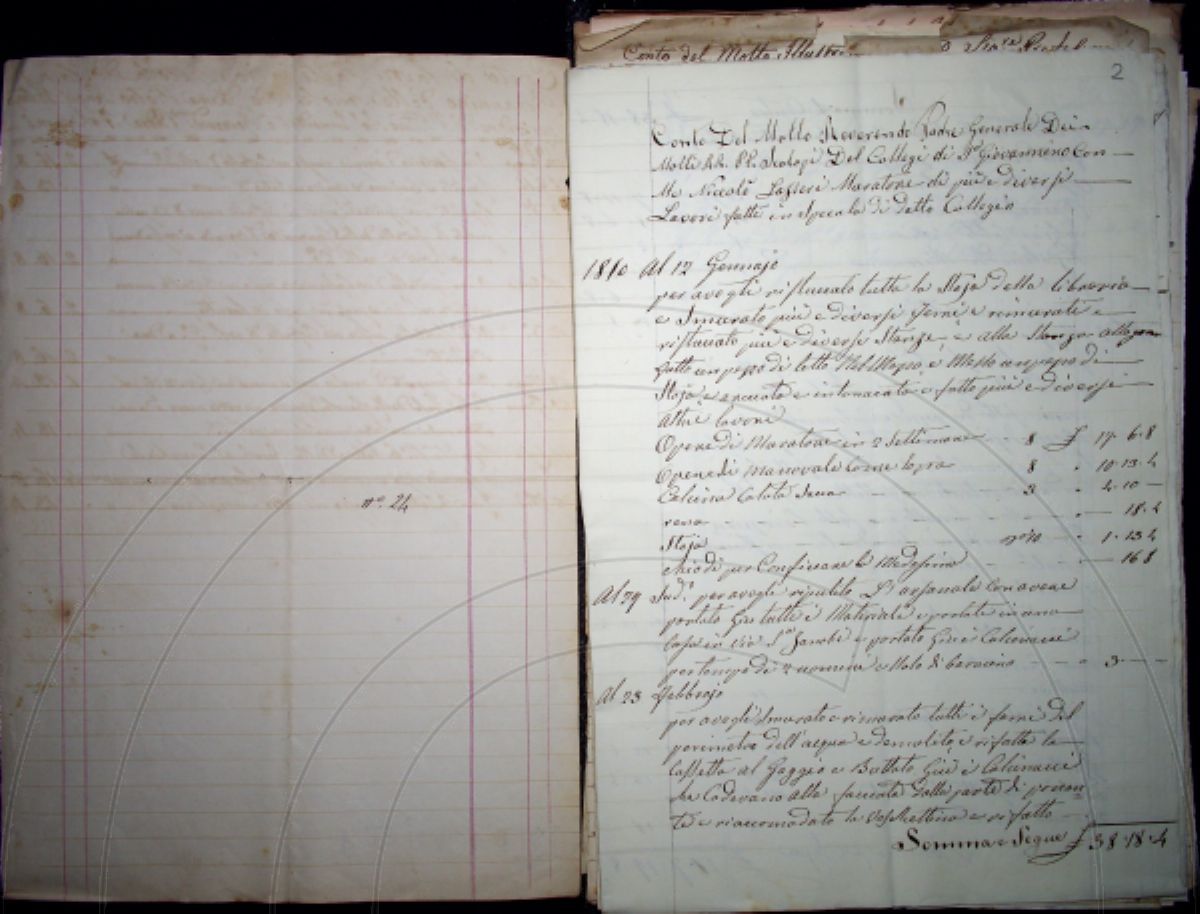 nº 24
Conto del Molto Illustri
2
Conto Del Molto Reverendo Padre Generale Dei
Molti RR. PP. Scolopi Del Collegi di Sº Giovannino Con
Me Niccolò Muratore di più e diversi
Lavori fatti in Specola di detto Collegio
1810 Al 12 Gennajo
per avegli ristuccato tutta la Stoja della libreria
e Smurato più e diversi ferri e rimurati e
ristuccato più e diverse Stanze, e alla
fatto un pezzo di tetto e Messo un pezzo di
Stoja e e intonacato e fatto più e diversi
altri lavori
Opere di Muratore in 2 Settimane 8 £ 17 6 8
Opere di Manovale Come Sopra 8 " 10 13 4
Calcina 3 " 2 10 —
rena " — 18 4
Stoja nº 10 " 1 13 4
chiodi per Conficcare la Medesima " — 16 8
Al 29 Sudº per avegli ripulito L'arsenale Con avere
portato Giù tutti i Materiali e portati in una
Casa in via Sº Zanobi e portato Giù i Calcinacci
per tempo di 2 uomini e Nolo di baroccino " 3 —
Al 23 Febbrajo
per avegli Smurato e rimurato tutti i ferri del
porimetro dell'acqua e demolito e rifatto la
Cassetta al Gaggio e Buttato Giù i Calcinacci
che Cadevano alla facciata dalla parte di ponen=
te e riaccomodato la Vaschettina e rifatto
Somma e Segue £ 38 18 4